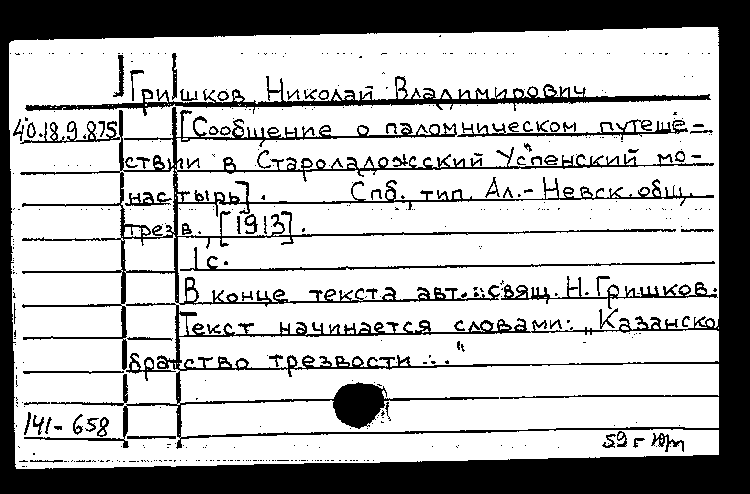 Гришков, Николай Владимирович
40.18.9.875
[Сообщение о паломническом путеше-
ствии в Староладожсский Успенский мо-
настырь]. Спб., тип. Ал.-Невск. общ.
трезв., [1913].
1с.
В конце текста авт.: свящ. Н. Гришков.
Текст начинается словами: „Казанско
братство трезвости..."
141-658
59г